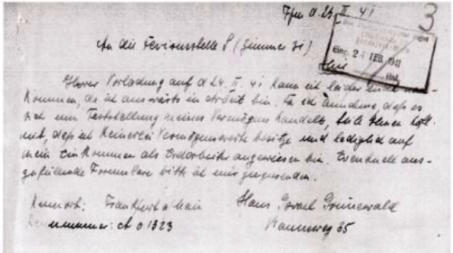 Ffm d. 24. II. 41
3
An die Devisenstelle S (Zimmer 31)
Hier
24. FEB. 1941
Ihrer Vorladung auf d 24. II. 41 kann ich leider nicht
kommen, da ich auswärts in Arbeit bin. Da ich annehme, daß es
sich um Feststellung meines Vermögens handelt, teile Ihnen höfl.
mit, daß ich keinerlei Vermögenswerte besitze und lediglich auf
mein Einkommen als Erdarbeiter angewiesen bin. Eventuell aus-
zufüllende Formulare bitte ich mir zuzusenden.
Kennort: Frankfurt a/Main
Hans Israel Grünewald
Kennummer: A 01323
35